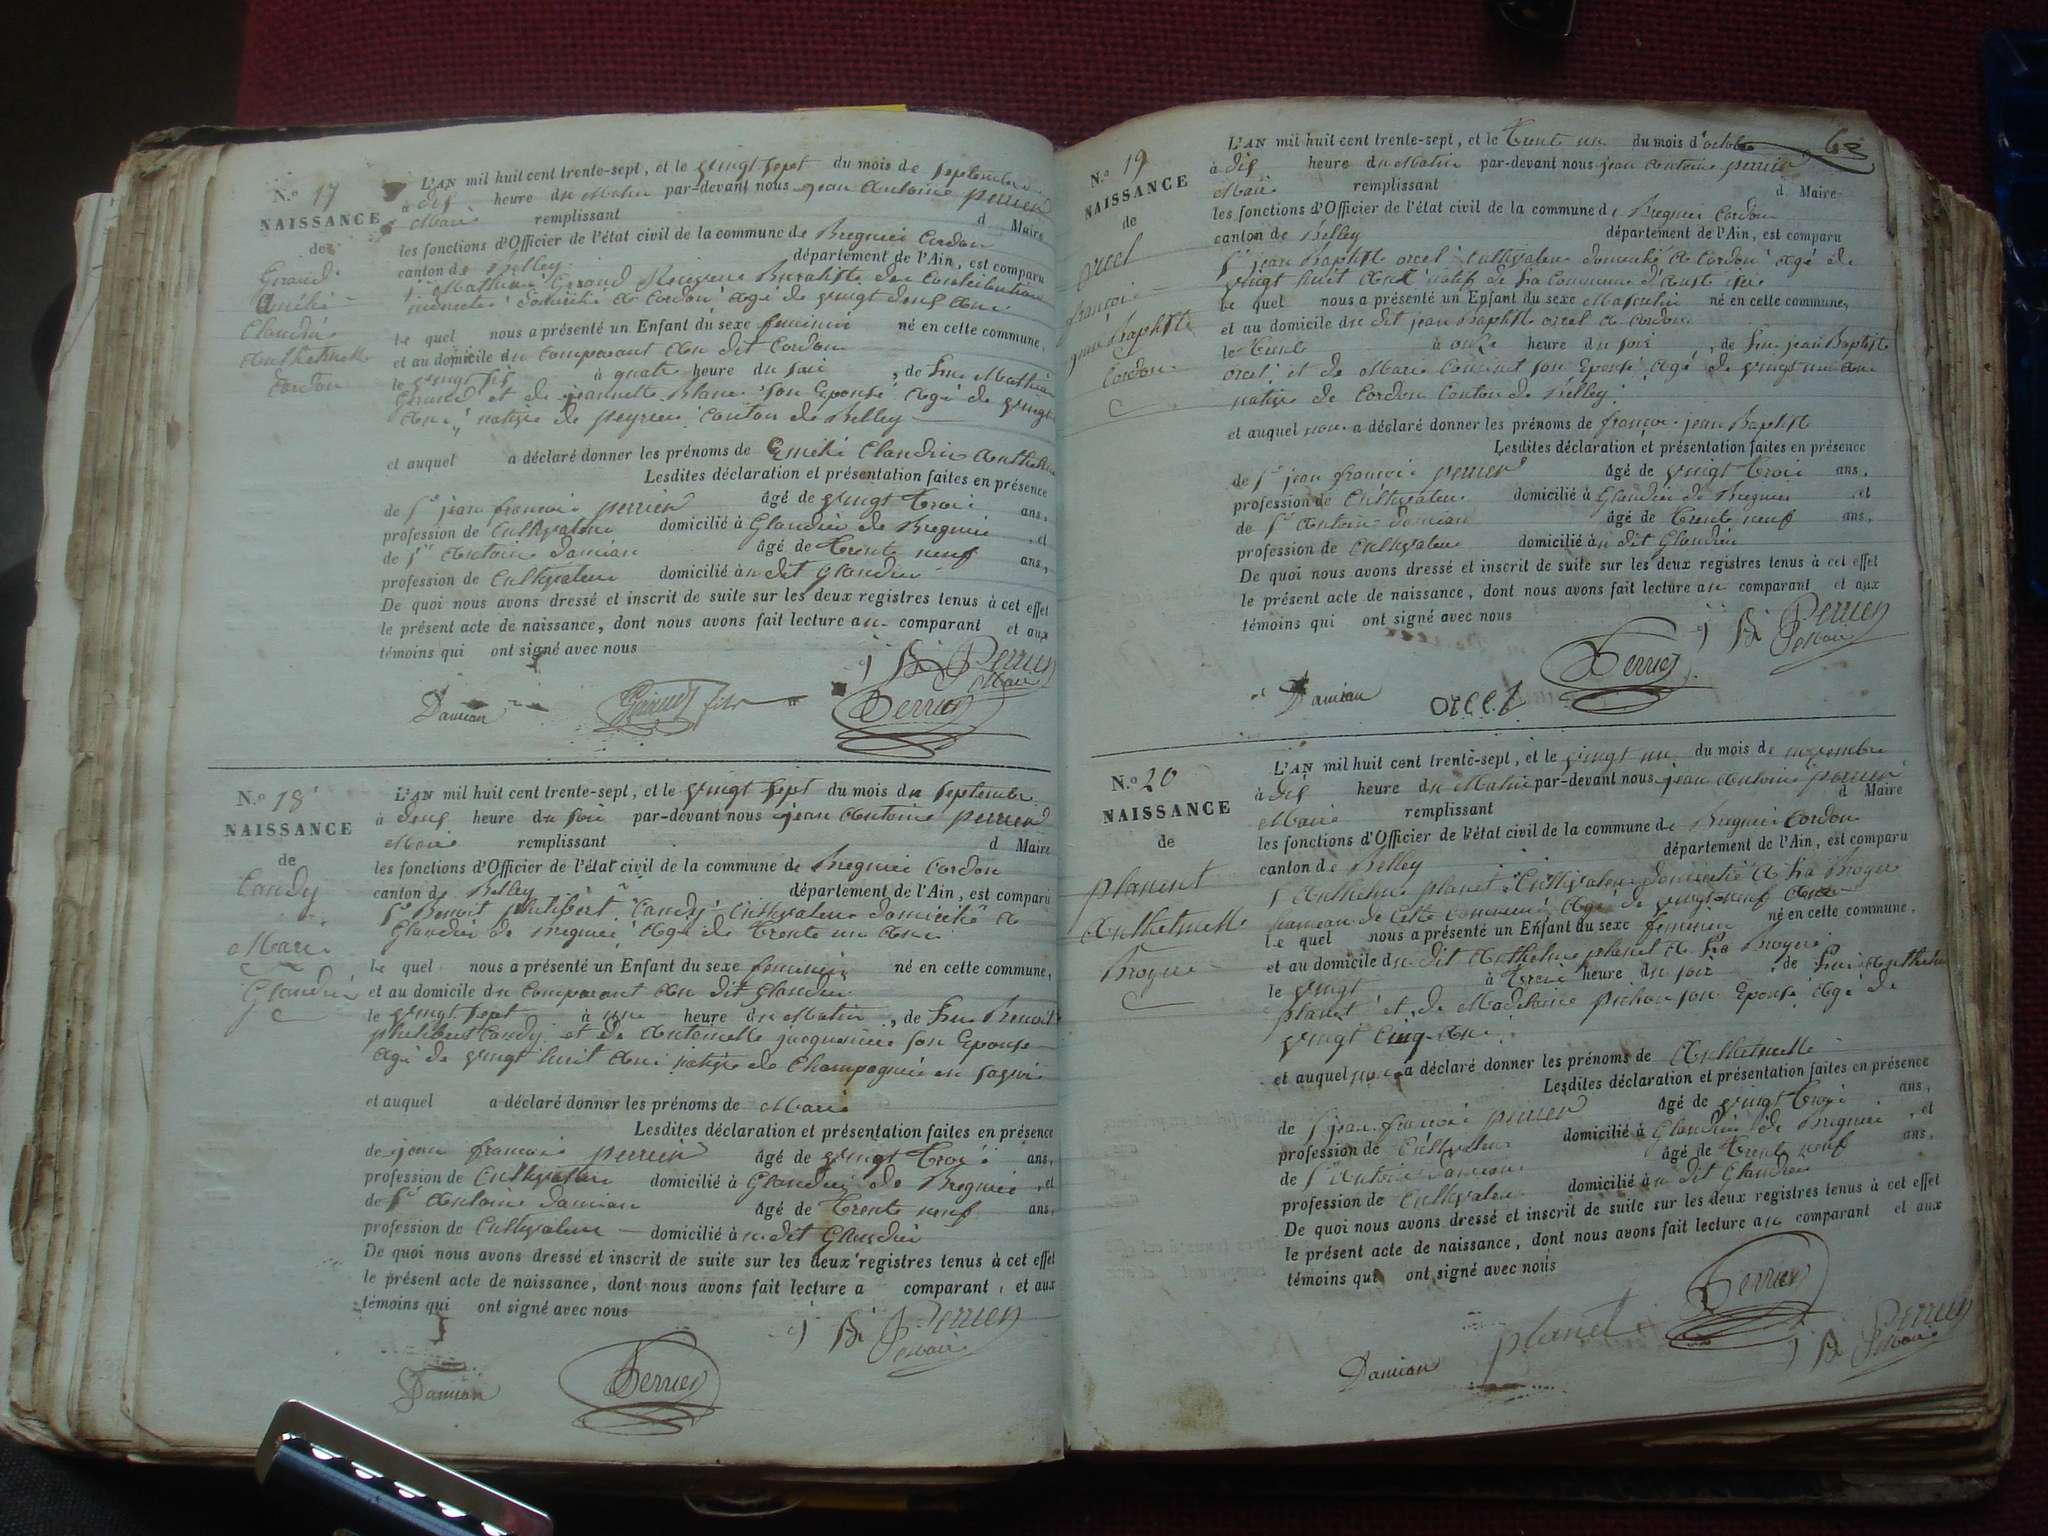 N.º 17
NAISSANCE
de
Girand
Claudine
Anthelmette
Cordon
L'AN mil huit cent trente-sept, et le vingt sept du mois de septembre
à dix heure du Matin par-devant nous jean Antoine perrier
Maire remplissant d Maire
les fonctions d'Officier de l'état civil de la commune de Bregnier Cordon
canton de Belley département de l'Ain, est comparu
Sr Mathieu Girand Receveur Buraliste des Contributions
indirectes domicilié à Cordon agé de vingt deux ans
le quel nous a présenté un Enfant du sexe feminin né en cette commune,
et au domicile du comparant au dit Cordon
le vingt six à quatre heure du soir, de Sieur Mathieu
Girand et de jeannette Blanc son Epouse agé de vingt
ans native de peyrieu canton de Belley
et auquel a déclaré donner les prénoms de Claudine
Lesdites déclaration et présentation faites en présence
de Sr jean françois perrier âgé de vingt trois ans,
profession de Cultivateur domicilié à Glandieu de Bregnier, et
de Sr Antoine Damian âgé de trente neuf ans,
profession de Cultivateur domicilié au dit Glandieu
De quoi nous avons dressé et inscrit de suite sur les deux registres tenus à cet effet
le présent acte de naissance, dont nous avons fait lecture au comparant et aux
témoins qui ont signé avec nous
Perrier
Maire
Damian Perrier
N.º 18
NAISSANCE
de
Candy
Marie
Glandieu
L'AN mil huit cent trente-sept, et le vingt sept du mois de septembre
à deux heure du soir par-devant nous jean Antoine perrier
Maire remplissant d Maire
les fonctions d'Officier de l'état civil de la commune de Bregnier Cordon
canton de Belley département de l'Ain, est comparu
Sr Benoit philibert Candy Cultivateur domicilié à
Glandieu de Bregnier agé de trente un ans
le quel nous a présenté un Enfant du sexe feminin né en cette commune,
et au domicile du comparant au dit Glandieu
le vingt sept à une heure du Matin, de Sieur Benoit
philibert Candy et de Antoinette son Epouse
agé de vingt huit ans native de Champagneux en savoie
et auquel a déclaré donner les prénoms de Marie
Lesdites déclaration et présentation faites en présence
de jean françois perrier âgé de vingt trois ans,
profession de Cultivateur domicilié à Glandieu de Bregnier, et
de Sr Antoine Damian âgé de trente neuf ans,
profession de Cultivateur domicilié au dit Glandieu
De quoi nous avons dressé et inscrit de suite sur les deux registres tenus à cet effet
le présent acte de naissance, dont nous avons fait lecture a comparant, et aux
témoins qui ont signé avec nous
Perrier
Maire
Damian Perrier
N.º 19
NAISSANCE
de
orcel
françois
jean Baptiste
Cordon
L'AN mil huit cent trente-sept, et le trente un du mois d'octobre
à dix heure du Matin par-devant nous jean Antoine perrier
Maire remplissant d Maire
les fonctions d'Officier de l'état civil de la commune de Bregnier Cordon
canton de Belley département de l'Ain, est comparu
Sr jean Baptiste orcel Cultivateur domicilié à Cordon agé de
vingt huit ans natif de la commune d'Aoste isere
le quel nous a présenté un Enfant du sexe Masculin né en cette commune,
et au domicile du dit jean Baptiste orcel à Cordon
le trente à onze heure du soir, de Sieur jean Baptiste
orcel et de Marie son Epouse agé de vingt un ans
native de Cordon Canton de Belley
et auquel nous a déclaré donner les prénoms de françois jean Baptiste
Lesdites déclaration et présentation faites en présence
de Sr jean françois perrier âgé de vingt trois ans,
profession de Cultivateur domicilié à Glandieu de Bregnier, et
de Sr Antoine Damian âgé de trente neuf ans,
profession de Cultivateur domicilié au dit Glandieu
De quoi nous avons dressé et inscrit de suite sur les deux registres tenus à cet effet
le présent acte de naissance, dont nous avons fait lecture au comparant et aux
témoins qui ont signé avec nous
Perrier
Maire
Perrier
Damian orcel
N.º 20
NAISSANCE
de
planent
Anthelmette
L'AN mil huit cent trente-sept, et le vingt un du mois de novembre
à dix heure du Matin par-devant nous jean Antoine perrier
Maire remplissant d Maire
les fonctions d'Officier de l'état civil de la commune de Bregnier Cordon
canton de Belley département de l'Ain, est comparu
Sr Anthelme planet Cultivateur domicilié à la
hameau de cette commune agé de vingt neuf ans
le quel nous a présenté un Enfant du sexe feminin né en cette commune,
et au domicile du dit Anthelme planet à la
le vingt à trois heure du soir, de Sieur Anthelme
planet et de Madelaine pichon son Epouse agé de
vingt cinq ans
et auquel nous a déclaré donner les prénoms de Anthelmette
Lesdites déclaration et présentation faites en présence
de Sr jean françois perrier âgé de vingt trois ans,
profession de Cultivateur domicilié à Glandieu de Bregnier, et
de Sr Antoine Damian âgé de trente neuf ans,
profession de Cultivateur domicilié au dit Glandieu
De quoi nous avons dressé et inscrit de suite sur les deux registres tenus à cet effet
le présent acte de naissance, dont nous avons fait lecture au comparant et aux
témoins qui ont signé avec nous
Perrier
Damian planet Perrier
Maire